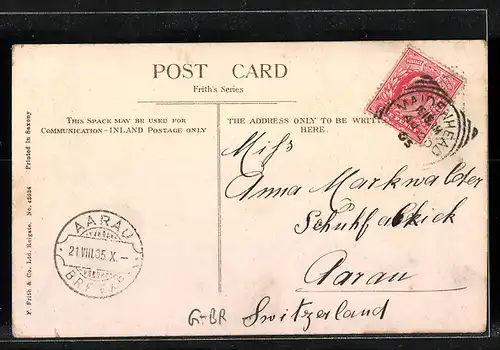 POST CARD
Frith's Series
THIS SPACE MAY BE USED FOR
COMMUNICATION—INLAND POSTAGE ONLY
THE ADDRESS ONLY TO BE WRITTEN
HERE.
MAIDENHEAD
Miss
Anna Markwalder
Aarau
Switzerland
AARAU
21.VIII.05.X.–
BRF. EXP.
G-BR
F. Frith & Co. Ltd. Reigate. No.
Printed in Saxony